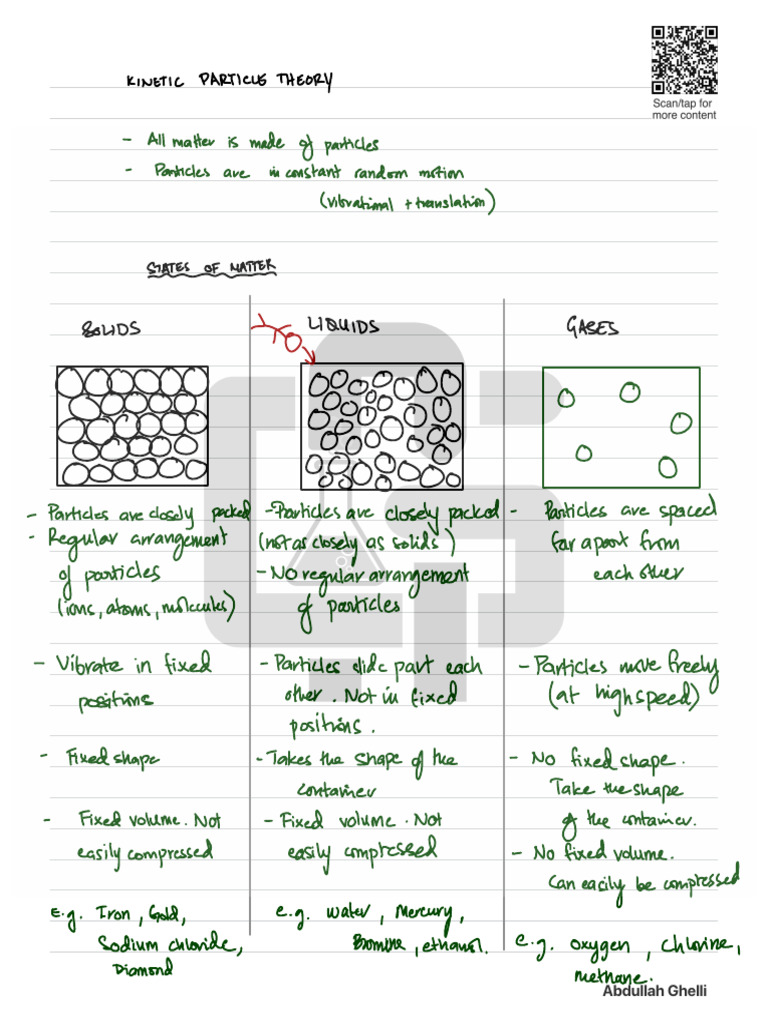 Scan/tap for
more content
KINETIC PARTICLE THEORY
- All matter is made of particles
- Particles are in constant random motion
(vibrational + translation)
STATES OF MATTER
SOLIDS
- Particles are closely packed
- Regular arrangement
of particles
(ions, atoms, molecules)
- Vibrate in fixed
positions
- Fixed shape
- Fixed volume. Not
easily compressed
E.g. Iron, Gold,
Sodium chloride,
Diamond
LIQUIDS
- Particles are closely packed
(not as closely as solids)
- No regular arrangement
of particles
- Particles slide part each
other. Not in fixed
positions.
- Takes the shape of the
container
- Fixed volume. Not
easily compressed
e.g. water, Mercury,
Bromine, ethanol.
GASES
- Particles are spaced
far apart from
each other
- Particles move freely
(at high speed)
- No fixed shape.
Take the shape
of the container.
- No fixed volume.
Can easily be compressed
e.g. oxygen, chlorine,
methane.
Abdullah Ghelli